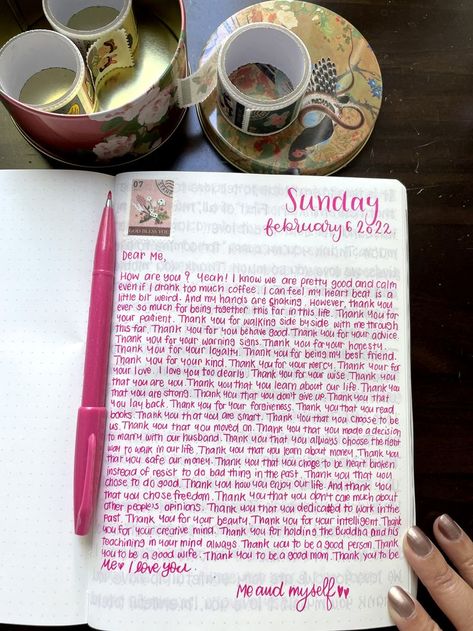 07
GOD BLESS YOU
Sunday
february 6 2022
Dear Me,
How are you? Yeah! I know we are pretty good and calm
even if I drank too much coffee. I can feel my heart beat is a
little bit weird. And my hands are shaking. However, thank you
ever so much for being together this far in this life. Thank you for
your patient. Thank you for walking side by side with me through
this far. Thank you for you behave good. Thank you for your advice.
Thank you for your warning signs. Thank you for your honesty.
Thank you for your loyalty. Thank you for being my best friend.
Thank you for your kind. Thank you for your mercy. Thank your for
your love. I love you too clearly. Thank you for your wise. Thank you
that you are you. Thank you that you learn about our life. Thank you
that you are strong. Thank you that you don't give up. Thank you that
you lay back. Thank you for your forgiveness. Thank you that you read
books. Thank you that you are smart. Thank you that you choose to be
us. Thank you that you moved on. Thank you that you made a decision
to marry with our husband. Thank you that you always choose the right
way to walk in our life. Thank you that you learn about money. Thank you
that you safe our money. Thank you that you chose to be heart broken
instead of resist to do bad thing in the past. Thank you that you
chose to do good. Thank you how you enjoy our life. And thank you
that you chose freedom. Thank you that you don't care much about
other people's opinions. Thank you that you dedicated to work in the
past. Thank you for your beauty. Thank you for your intelligent. Thank
you for your creative mind. Thank you for holding the Buddha and his
teachining in your mind always. Thank you to be a good person. Thank
you to be a good wife. Thank you to be a good mom. Thank you to be
Me ♥ I love you.
Me and myself ♥♥